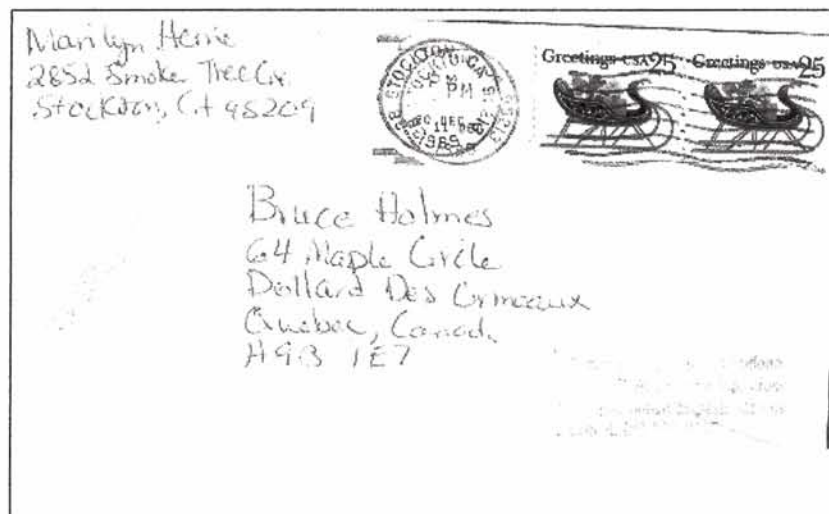 Marilyn Herrie
2852 Smoke Tree Cir.
Stockton, CA 95209
STOCKTON CA
PM
DEC
11
1989
Greetings USA 25
Greetings USA 25
Bruce Holmes
64 Maple Circle
Dollard Des Ormeaux
Quebec, Canada
H9B 1E7